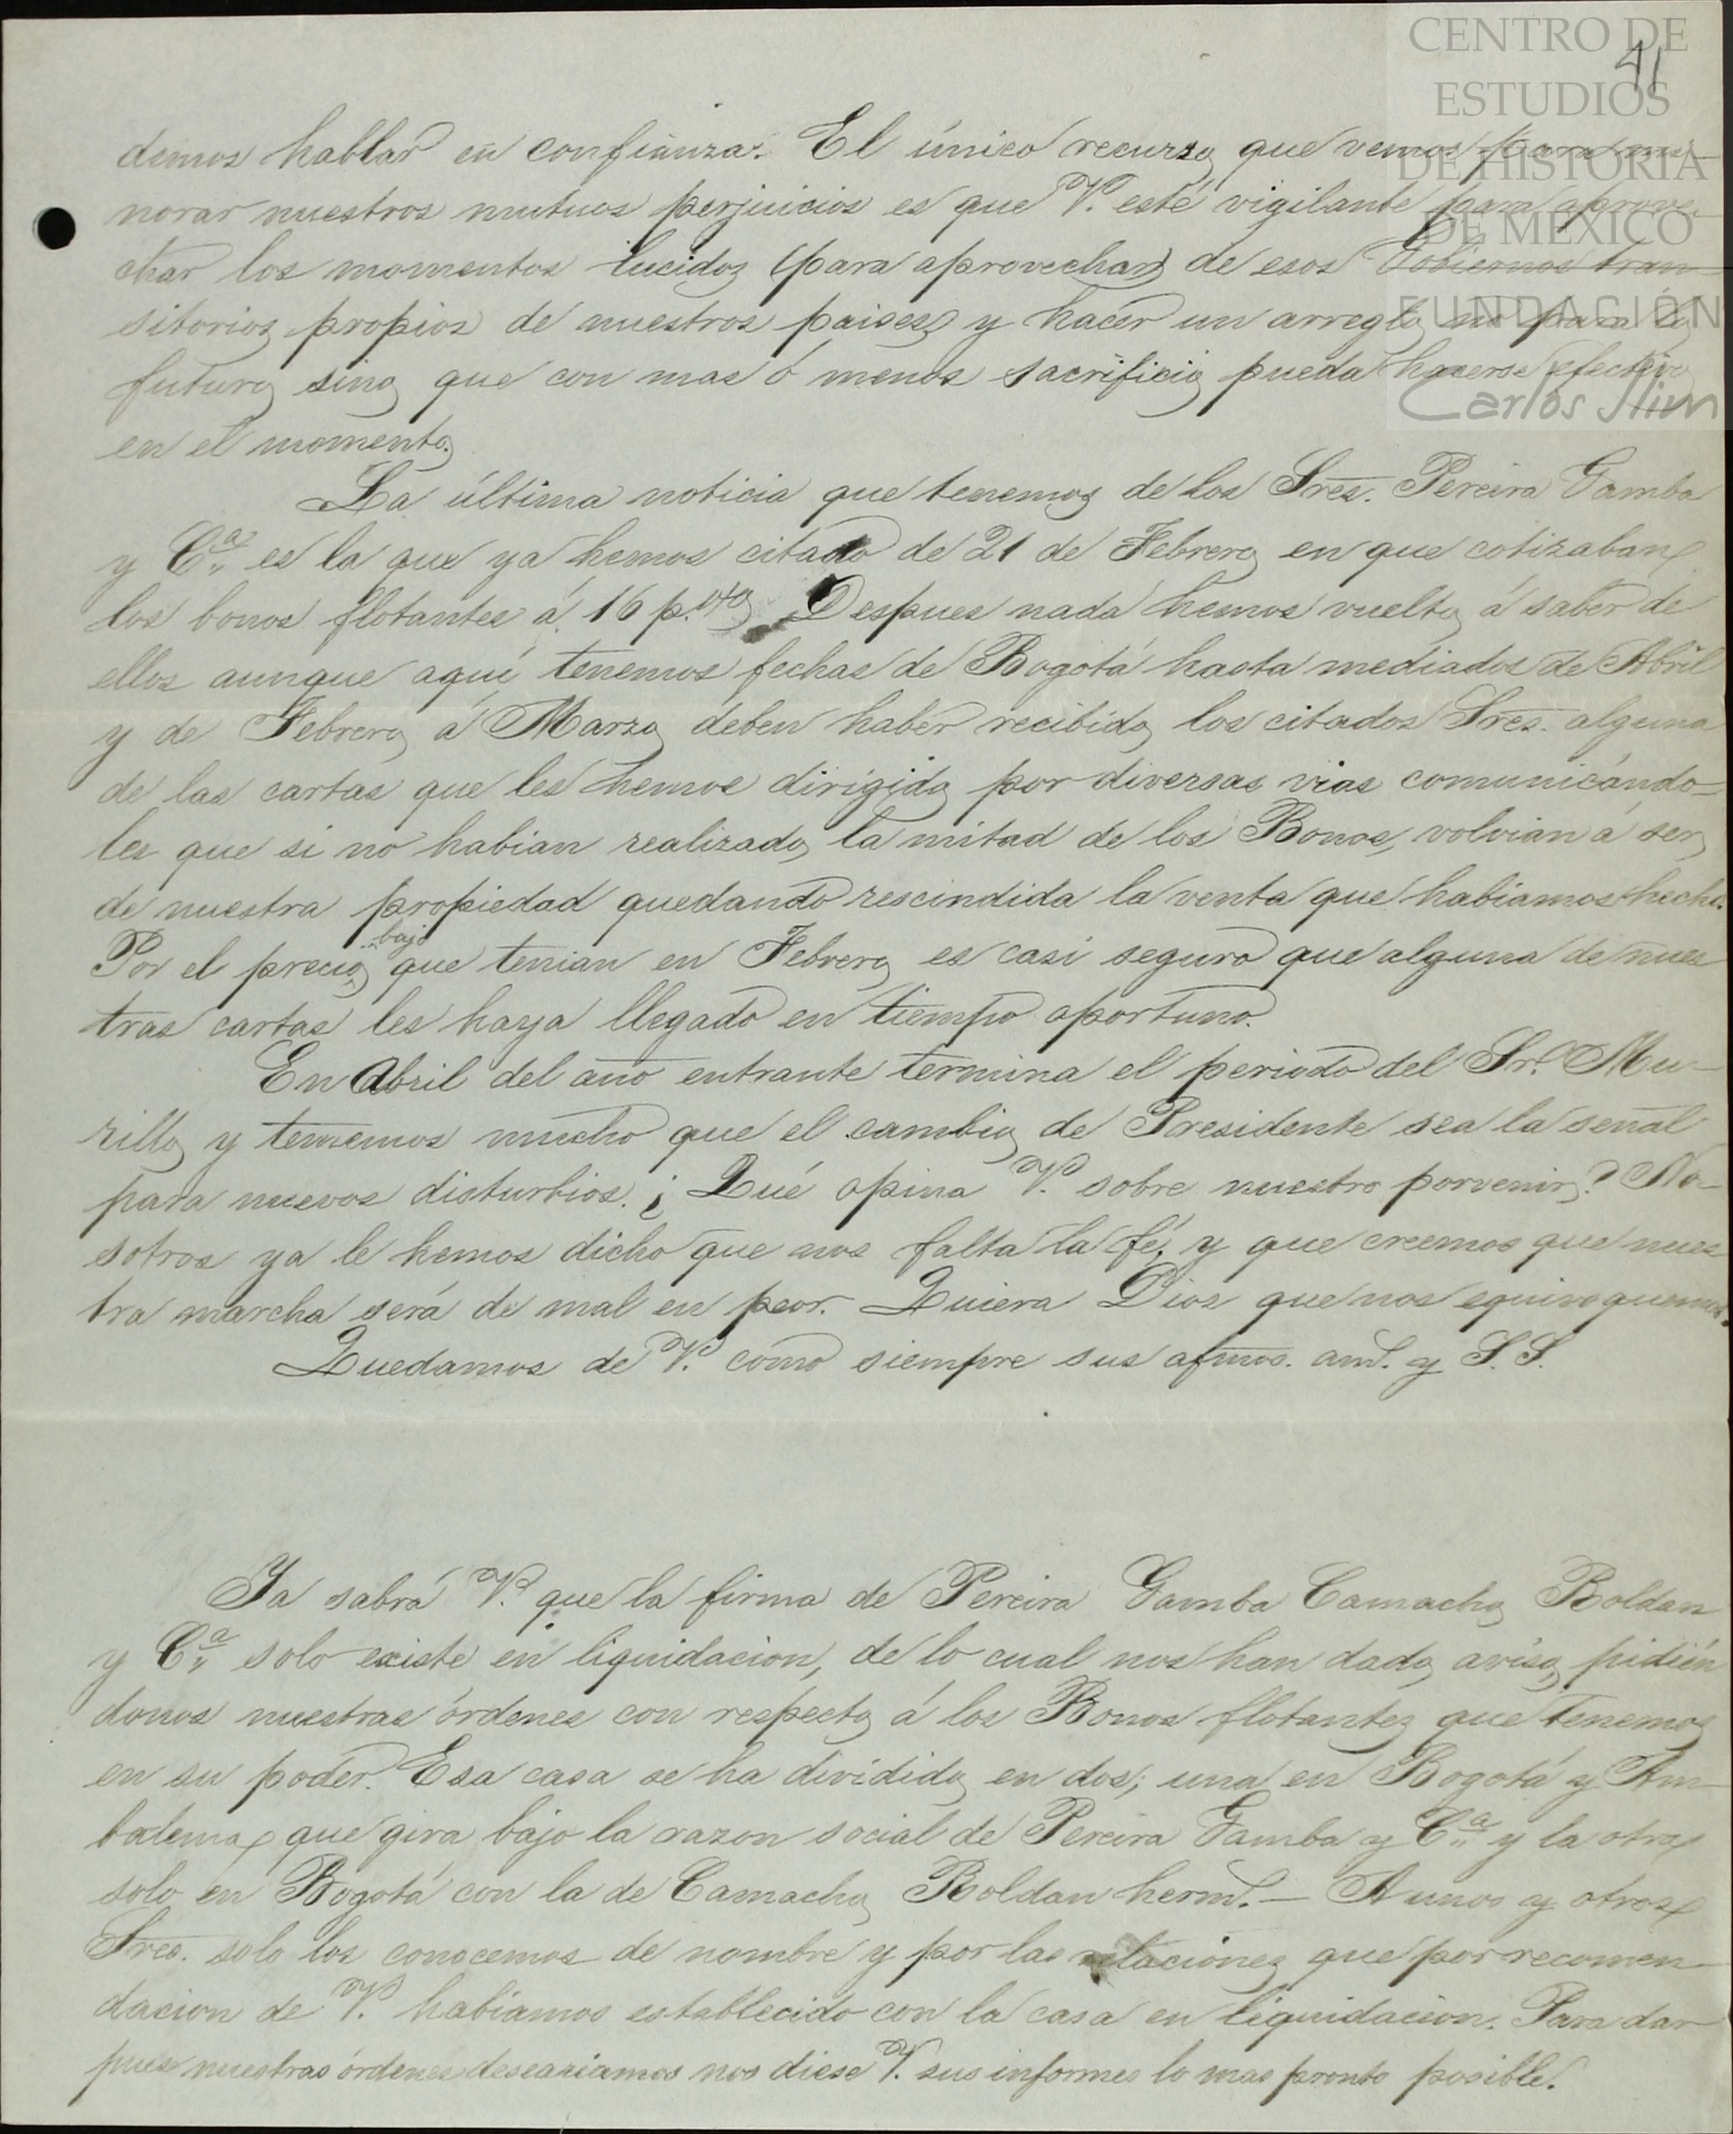 CENTRO DE
ESTUDIOS
DE HISTORIA
DE MEXICO
FUNDACIÓN
Carlos Slim
41
demos hablar en confianza. El único recurso que vemos para mi-
norar nuestros mutuos perjuicios es que V. esté vigilante para aprove-
char los momentos lucidos (para aprovechar) de esos Gobiernos tran-
sitorios propios de nuestros paises y hacer un arreglo no para lo
futuro sino que con mas ó menos sacrificio pueda hacerse efectivo
en el momento.
La última noticia que tenemos de los Sres. Pereira Gamba
y Cª es la que ya hemos citado de 21 de Febrero en que cotizaban
los bonos flotantes á 16 p. Despues nada hemos vuelto á saber de
ellos aunque aquí tenemos fechas de Bogotá hasta mediados de Abril
y de Febrero á Marzo deben haber recibido los citados Sres. alguna
de las cartas que les hemos dirigido por diversas vias comunicándo-
les que si no habian realizado la mitad de los Bonos, volvian á ser
de nuestra propiedad quedando rescindida la venta que habiamos hecho.
Por el precio bajo que tenian en Febrero es casi seguro que alguna de nues
tras cartas les haya llegado en tiempo oportuno.
En Abril del año entrante termina el periodo del Sr. Mu-
rillo y tememos mucho que el cambio de Presidente sea la señal
para nuevos disturbios. ¿Qué opina V. sobre nuestro porvenir? No-
sotros ya le hemos dicho que nos falta la fé, y que creemos que nues
tra marcha será de mal en peor. Quiera Dios que nos equivoquemos.
Quedamos de V. como siempre sus afmos. am.s y S. S.
Ya sabrá V. que la firma de Pereira Gamba Camacho Roldan
y Cª solo existe en liquidacion, de lo cual nos han dado aviso, pidién
donos nuestras órdenes con respecto á los Bonos flotantes que tenemos
en su poder. Esa casa se ha dividido en dos; una en Bogotá y Am-
balema que gira bajo la razon social de Pereira Gamba y Cª y la otra
solo en Bogotá con la de Camacho Roldan herm.s — A unos y otros
Sres. solo los conocemos de nombre y por las relaciones que por recomen-
dacion de V. habiamos establecido con la casa en liquidacion. Para dar
pues nuestras órdenes deseariamos nos diese V. sus informes lo mas pronto posible.